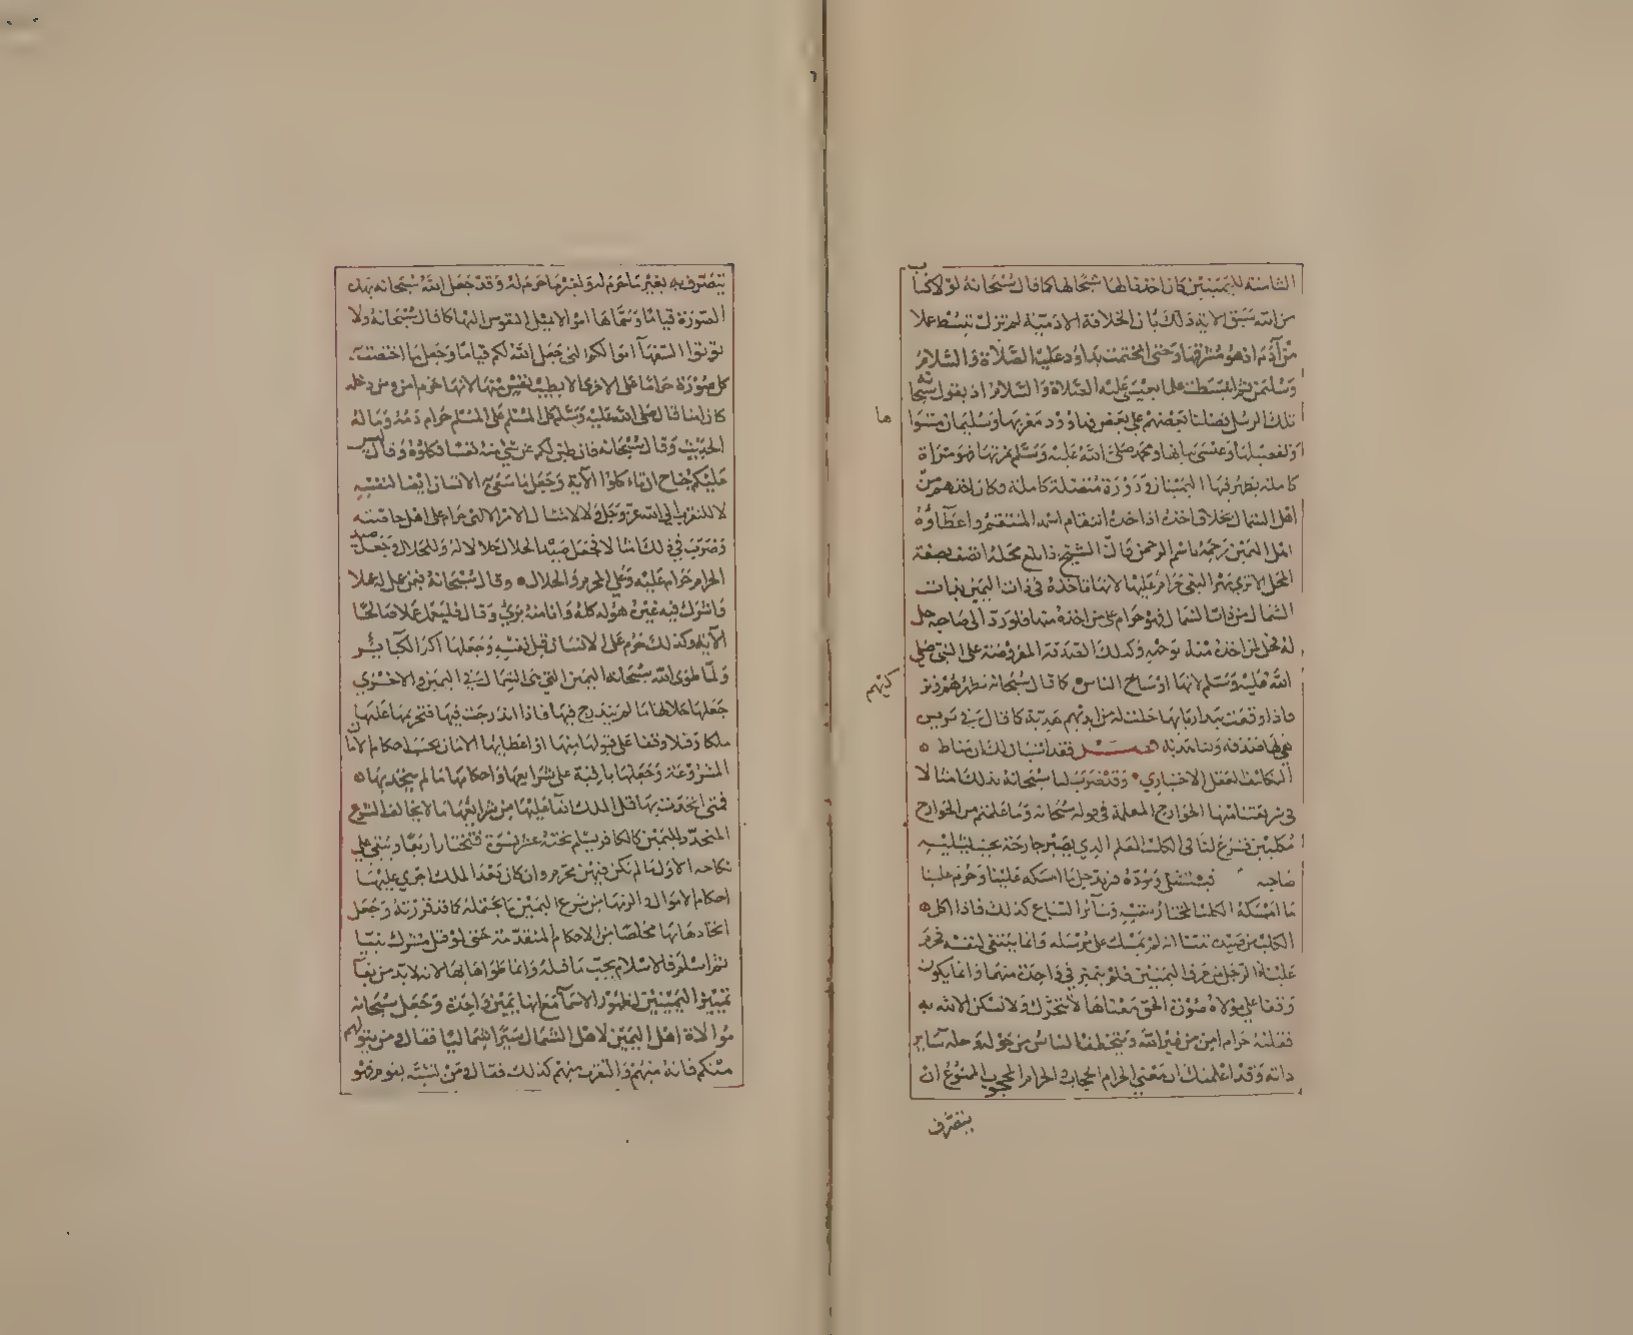 الثامنة لليمينين كان اخفقالها شبحالها كما قال سبحانه لولا كتاب
من الله سبق الاية ذلك بان الخلافة الادمية لم تزل تبسط علا
من آدم اذ هو مشرقها وحتى اختمت بداود عليه الصلاة والسلام
وسليمن ثم انبسطت علما بعيسى عليه الصلاة والسلام اذ يقول سبحانه
تلك الرسل فضلنا بعضهم على بعض فداوود مغربها وسليمان
وعيسى ومحمد صلى الله عليه وسلم
كاملة اليمينان ودورة متصلة كاملة وكان اخذهم من
اهل الشمال بخلاف اخذه اذا اخذه انتقام اسمه المنتقم واعطاؤه
اهل اليمين رحمة باسم الرحمن قال الشيخ ذا بلغ محله اتصف بصفة
المحل الا ترى حرام عليها لانها ما اخذه في ذات اليمين بذات
الشمال من ذات الشمال فهو حرام على من اخذه منها فلو رد الى صاحبه حل
له فحل لمن اخذه منه بوجه وكذلك الصدقة المفروضة على النبي صلى
الله عليه وسلم لانها اوساخ الناس كما قال سبحانه تطهرهم وتز
كيهم
فاذا وقعت بيد اربابها حلت له من ايديهم هدية كما قال في بريرة
هي لها صدقة ولنا هدية فصل فقد انبا لك ان مناط
التكاليف العقل الاختياري وقد ضرب لنا سبحانه بذلك امثالا
في شريعتنا منها الجوارح المعلمة في قوله سبحانه وما علمتم من الجوارح
مكلبين فشرع لنا في الكلب العلم الذي يصير جارحة
صاحبه حل ما امسكه علينا وحرم علينا
ما امسكه الكلب المختار بنفسه وسائر السباع كذلك فاذا اكل
الكلب من صيده تبينا انه لم يمسك على مرسله وانما لنفسه فحرم
علينا اذا الرجل من عرف اليمينين فلم يتميز في واحدة منهما وانما يكون
وقفا على مولاه صورة الحق بمعناها لا تتحرك ولا تسكن الا لله به
فقلبه حرام امن من غير الله ويتخطف الناس من حوله وحله سائر
ذاته وقد اعلمتك ان معنى الحرام الحجاب والحرام المحجوب الممنوع ان
يتصرف
يتصرف به بغير ما حرم له ولغير ما حرم له وقد جعل الله سبحانه بهذه
الصورة قياما وسماها اموالا لميل النفوس اليها كما قال سبحانه ولا
توتوا السفهاء اموالكم التي جعل الله لكم قياما وجعل ما اختصت به
كل صورة حراما على الاخرى الا بطيب نفس منها لانها حرم امن ومن دخله
كان امنا قال صلى الله عليه وسلم كل المسلم على المسلم حرام دمه وماله
الحديث وقال سبحانه فان طبن لكم عن شي منه نفسا فكلوه وقال ليس
عليكم جناح ان تاكلوا الآية وجعل ما سعى به الانسان ايضا لنفسه
لا للتقرب الى الله عز وجل ولا لامتثال الامر الالهي حرام على اهل
وضرب في ذلك مثلا فجعل صيد الحلال حلالا له وللحلال وجعل صيد
الحرام حرام عليه وعلى المحرم والحلال وقال سبحانه فمن عمل لي عملا
واشرك فيه غيري هو له كله وانا منه بري وقال فليعمل عملا صالحا
الآية وكذلك حرم على الانسان قتل نفسه وجعلها اكبر الكبائر
ولما طوى الله سبحانه اليمين التي هي الشمال في اليمين والاخرى
جعلها حلالا لها ما لم يندرج فيها فاذا اندرجت فيها فتحريمها عليها
ملكا وقفا على قبولها منها او اعطائها الامان بحسب احكام الامان
المشروعة وجعلها باقية على شرايعها واحكامها ما لم يتحد بها
فمتى اتحدت بها قبل الملك بقا عليها من شرايعها ما لا يخالف الشرع
المتحد لليمين كالكافر يسلم تحته عشر نسوة فيختار اربعا ويبقى على
نكاحه الاول ما لم يكن فيهن محرم وان كان بعد الملك جرى عليها
احكام الاموال والزمها من شرع اليمين ما تحتمله كما قد قررته وجعل
اتحادها بها مخلصا من الاحكام المتقدمة حتى لو قتل مشرك نبيا
ثم اسلم فالاسلام يجب ما قبله وانما طواها بها لانه لا بد من بقا
تمييز اليمينين لظهور الاسما مع انها يمين واحدة وجعل سبحانه
موالاة اهل اليمين لاهل الشمال سيرا شماليا فقال ومن يتولهم
منكم فانه منهم والتقرب منهم كذلك فقال ومن تشبه بقوم فهو